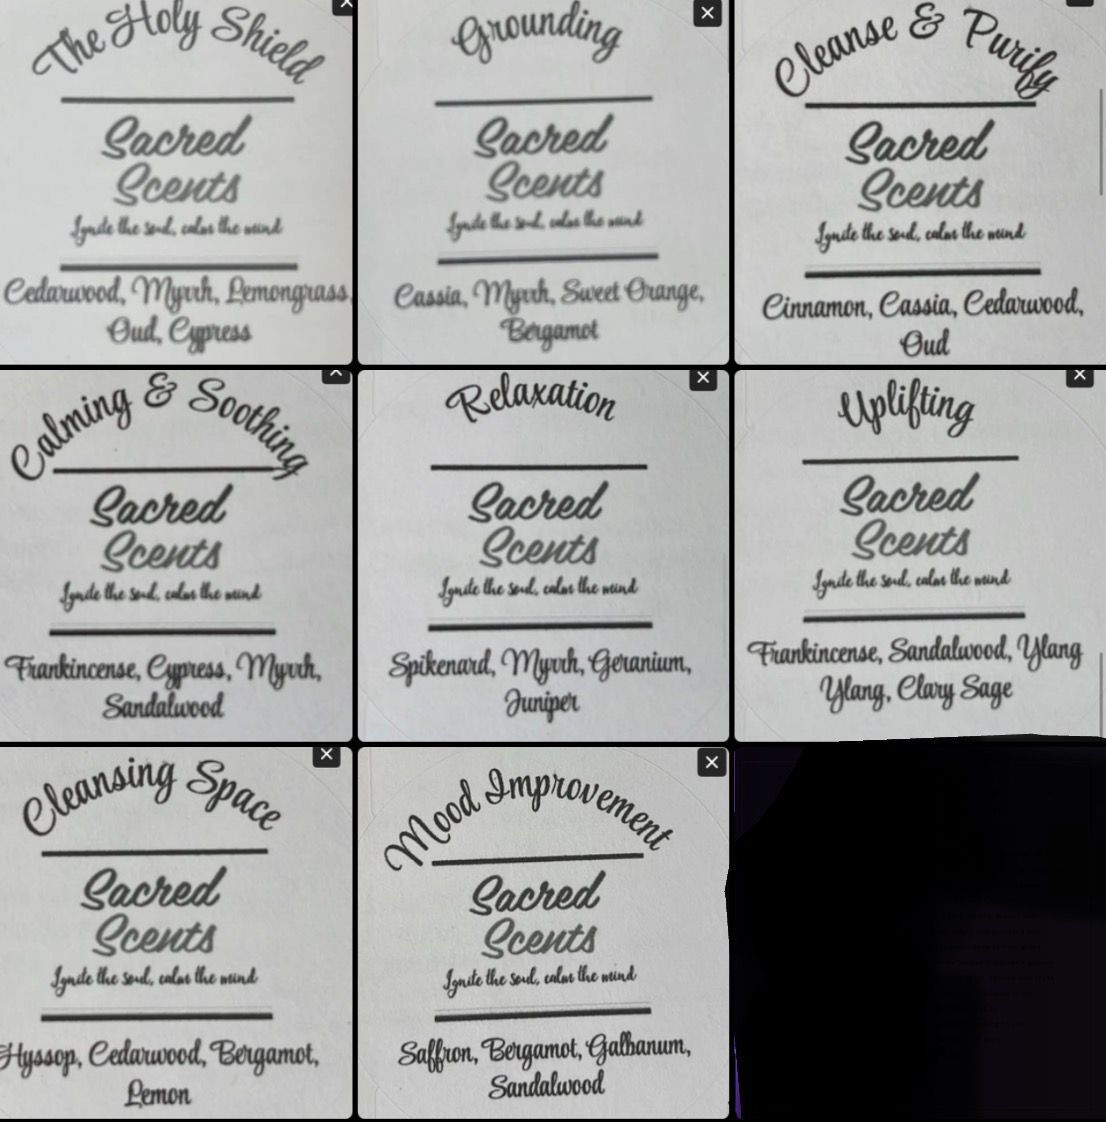 The Holy Shield
Sacred
Scents
Ignite the soul, calm the mind
Cedarwood, Myrrh, Lemongrass,
Oud, Cypress
Grounding
Sacred
Scents
Ignite the soul, calm the mind
Cassia, Myrrh, Sweet Orange,
Bergamot
Cleanse & Purify
Sacred
Scents
Ignite the soul, calm the mind
Cinnamon, Cassia, Cedarwood,
Oud
Calming & Soothing
Sacred
Scents
Ignite the soul, calm the mind
Frankincense, Cypress, Myrrh,
Sandalwood
Relaxation
Sacred
Scents
Ignite the soul, calm the mind
Spikenard, Myrrh, Geranium,
Juniper
Uplifting
Sacred
Scents
Ignite the soul, calm the mind
Frankincense, Sandalwood, Ylang
Ylang, Clary Sage
Cleansing Space
Sacred
Scents
Ignite the soul, calm the mind
Hyssop, Cedarwood, Bergamot,
Lemon
Mood Improvement
Sacred
Scents
Ignite the soul, calm the mind
Saffron, Bergamot, Galbanum,
Sandalwood